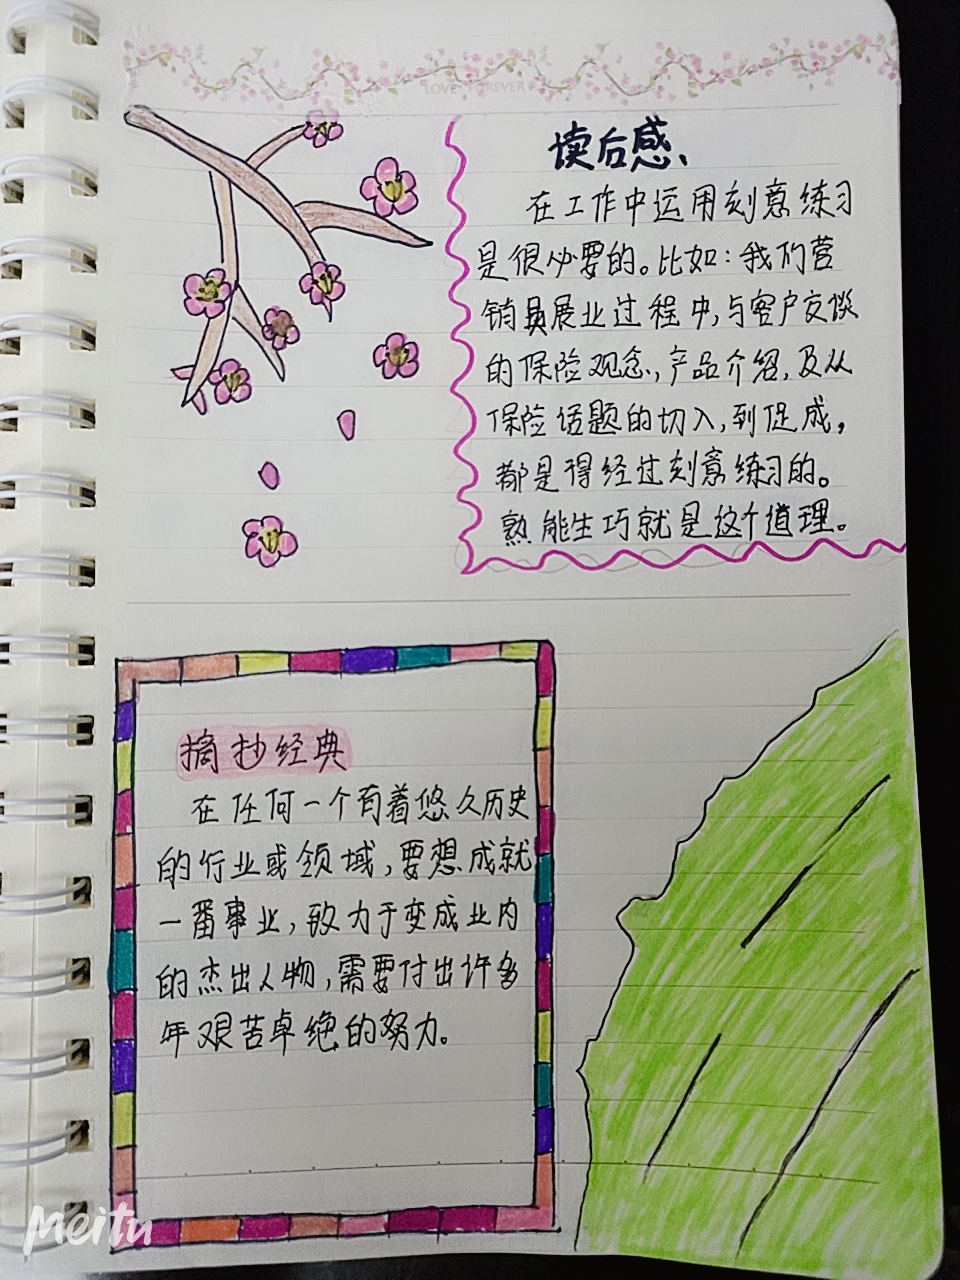 LOVE FOREVER
读后感、
在工作中运用刻意练习
是很必要的。比如：我们营
销员展业过程中,与客户交谈
的保险观念,产品介绍,及从
保险话题的切入,到促成,
都是得经过刻意练习的。
熟能生巧就是这个道理。
摘抄经典
在任何一个有着悠久历史
的行业或领域,要想成就
一番事业,致力于变成业内
的杰出人物,需要付出许多
年艰苦卓绝的努力。
Meitu